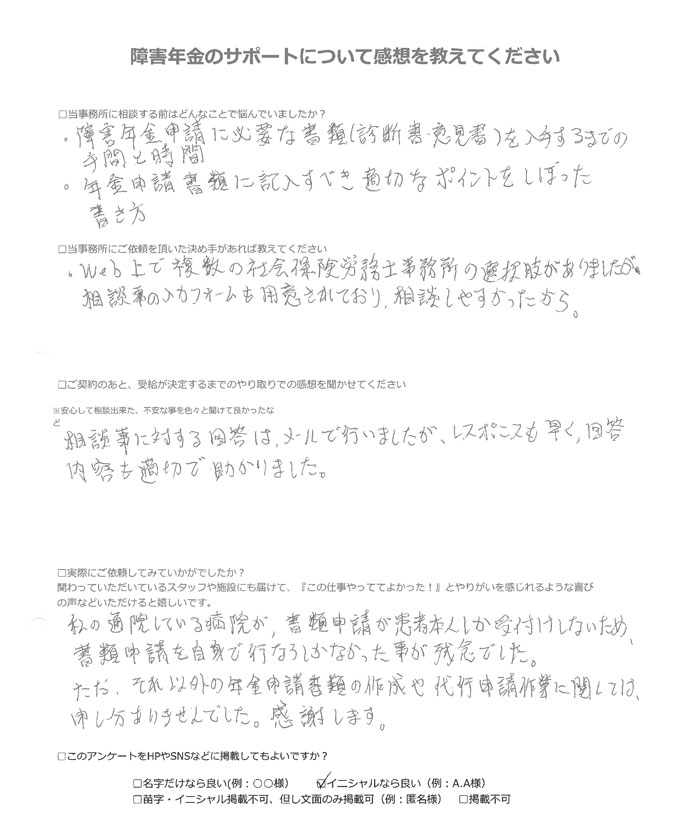 障害年金のサポートについて感想を教えてください
□当事務所に相談する前はどんなことで悩んでいましたか？
・障害年金申請に必要な書類(診断書・意見書)を入手するまでの
手間と時間
・年金申請書類に記入すべき適切なポイントをしぼった
書き方
□当事務所にご依頼を頂いた決め手があれば教えてください
・Web上で複数の社会保険労務士事務所の選択肢がありましたが、
相談事の入力フォームも用意されており、相談しやすかったから。
□ご契約のあと、受給が決定するまでのやり取りでの感想を聞かせてください
※安心して相談出来た、不安な事を色々と聞けて良かったな
ど
相談事に対する回答は、メールで行いましたが、レスポンスも早く、回答
内容も適切で助かりました。
□実際にご依頼してみていかがでしたか？
関わっていただいているスタッフや施設にも届けて、『この仕事やっててよかった！』とやりがいを感じれるような喜び
の声などいただけると嬉しいです。
私の通院している病院が、書類申請が患者本人しか受付けしないため、
書類申請を自身で行なうしかなかった事が残念でした。
ただ、それ以外の年金申請書類の作成や代行申請作業に関しては、
申し分ありませんでした。感謝します。
□このアンケートをHPやSNSなどに掲載してもよいですか？
□名字だけなら良い(例：〇〇様） ☑イニシャルなら良い（例：A.A様）
□苗字・イニシャル掲載不可、但し文面のみ掲載可（例：匿名様） □掲載不可